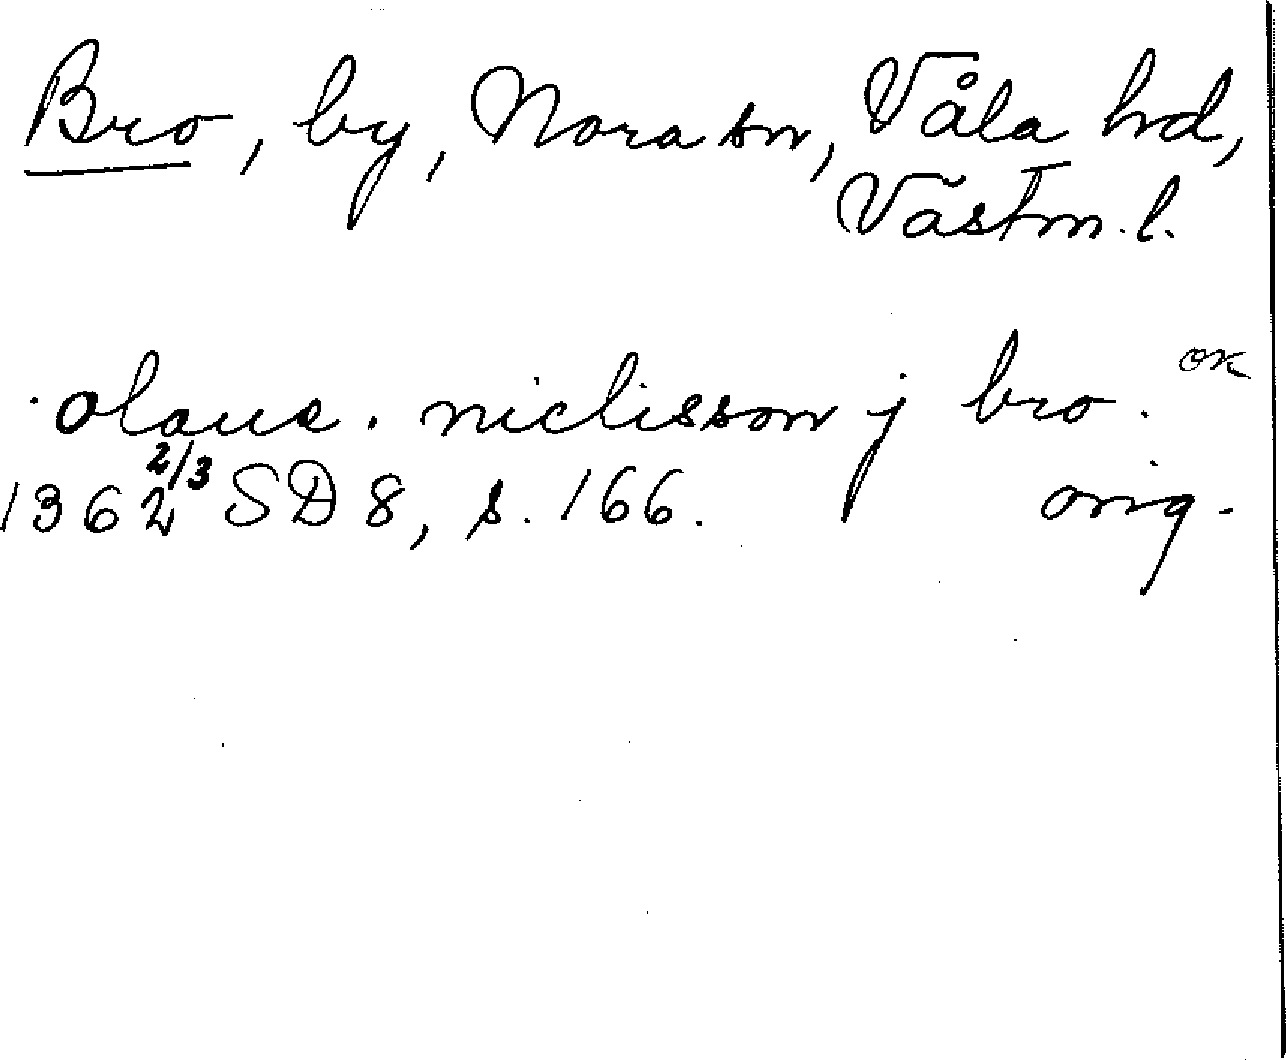 Bro, by, Nora sn, Våla hd,
Västm. l.
olaus. niclisson j bro. ok
1362 2/3 SD 8, s. 166. orig.